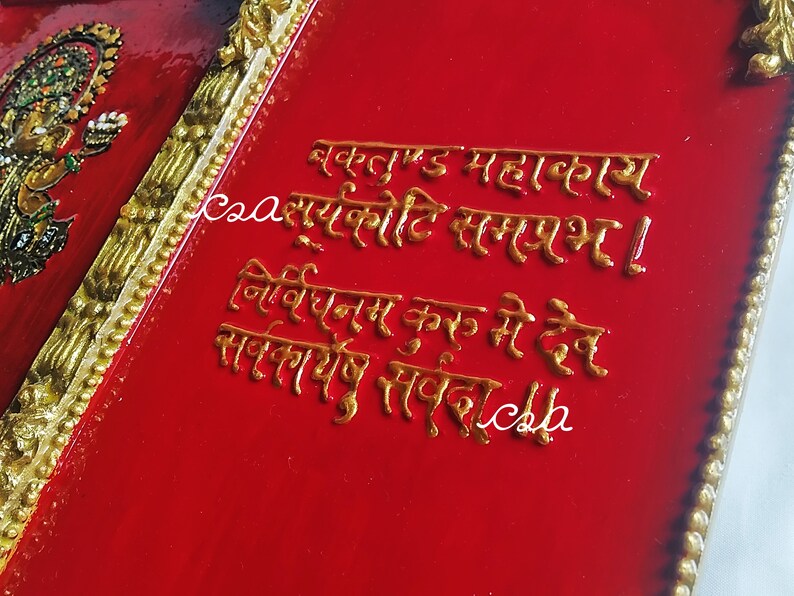 वकतुण्ड महाकाय
सूर्यकोटि समप्रभ।
निर्विघनम कुरु मे देव
सर्वकार्येषु सर्वदा॥
CSA
CSA